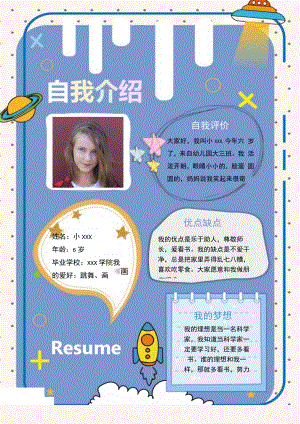 自我介绍
自我评价
大家好，我叫小 xx 今年六 岁
了，来自幼儿园大三班，我 活
泼开朗，眼睛小小的，脸蛋 圆
圆的，妈妈说我笑起来很哥
姓名：小 xxx
年龄：6 岁
毕业学校：xxx 学院我
的爱好：跳舞、画
画
优点缺点
我的优点是乐于助人，尊敬师
长，爱看书，我的缺点是不爱干
净，总是把家里弄得乱七八糟，
喜欢吃零食，大家愿意和我做朋
我的梦想
我的理想是当一名科学
家，我知道当科学家一
定要学习好，还要多看
书，谁的理想和我一
样，那就多看书，努力
Resume